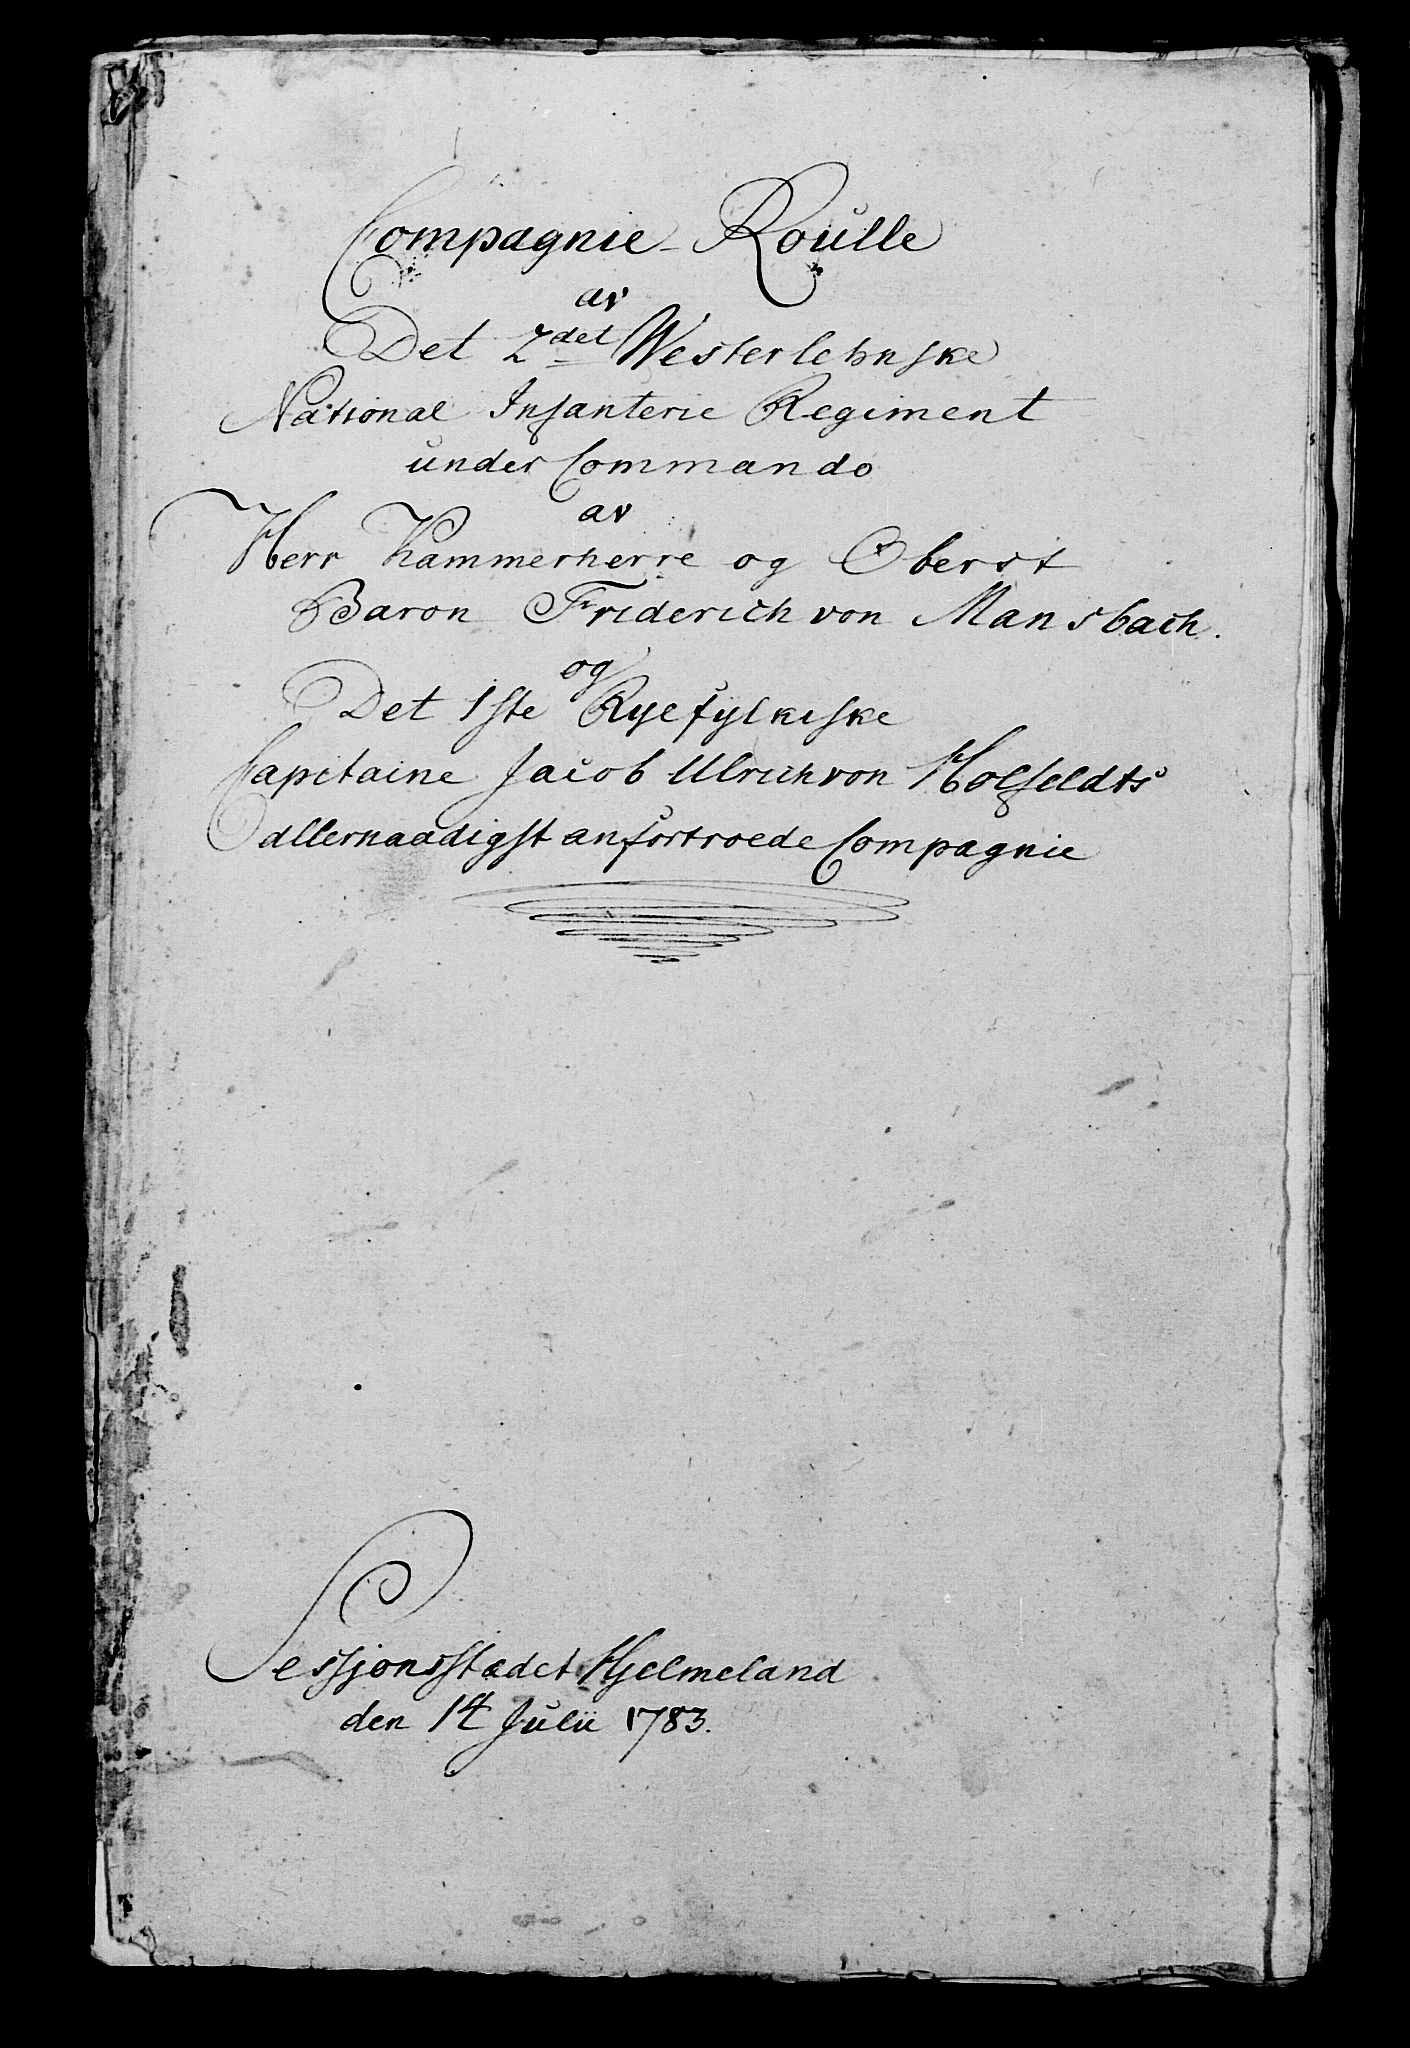 Compagnie-Roulle
av
Det 2det Westerlehnske
National Infanterie Regiment
under Commando
av
Herr Kammerherre og Oberst
Baron Friderich von Mansbach.
og
Det 1ste Ryefylkeske
Capitaine Jacob Ulrich von Holfeldts
allernaadigst anfortroede Compagnie
Sessjonsstædet Hjelmeland
den 14 Julii 1783.